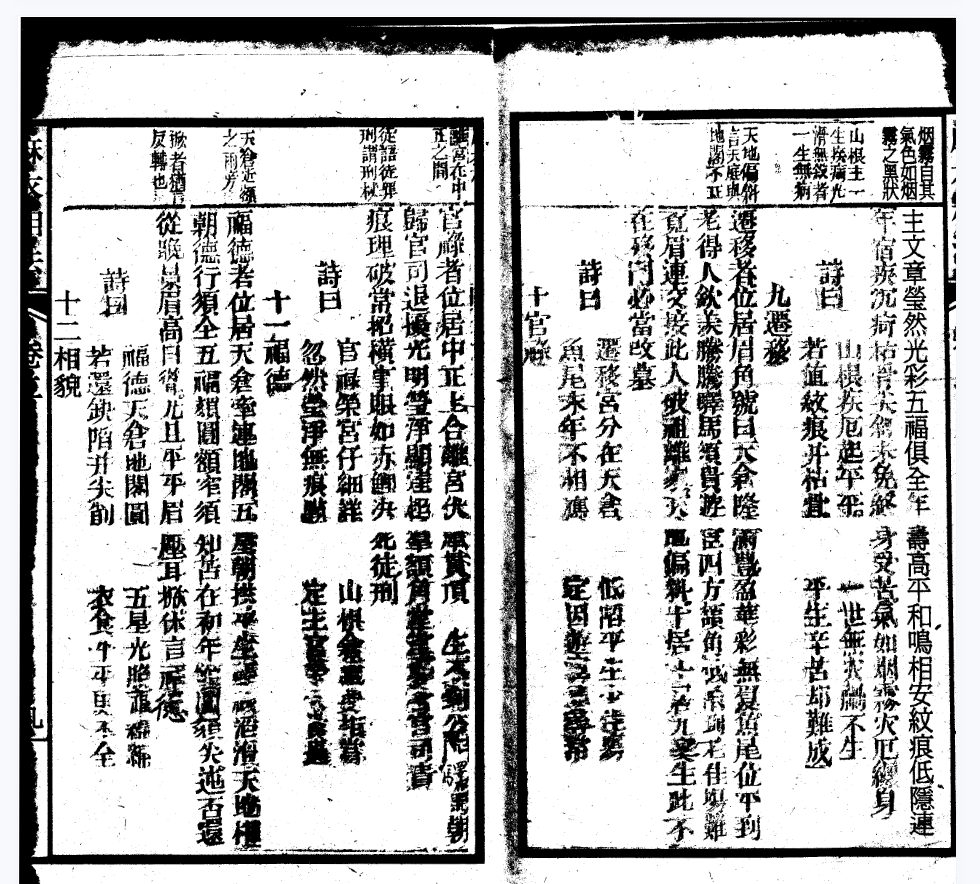 烟霧自其
氣色如烟
霧之黑狀
山根主一
生疾病光
滑無紋者
一生無病
天地偏斜
言天庭與
地閣不正
主文章瑩然光彩五福俱全年
壽高平和鳴相安紋痕低陷連
年宿疾沉疴枯骨尖斜未免終
身受苦氣如烟霧災厄纏身
詩曰
山根疾厄起平平
一世無災禍不生
若值紋痕并枯骨
平生辛苦却難成
九遷移
遷移者位居眉角號曰天倉隆
滿豐盈華彩無憂魚尾位平到
老得人欽羨騰騰驛馬須貴遊
宦四方額角低陷到老住場難
覓眉連交接此人破祖離家天
地偏斜十居九變生此不
在移門必當改墓
詩曰
遷移宮分在天倉
低陷平生少住場
魚尾末年不相應
定因遊宦却尋常
十官祿
離宮在中
正之間
從語從舞
刑謂刑杖
天倉近額
之兩旁
掀者猶言
反轉也
官祿者位居中正上合離宮伏
犀貫頂一生不到公庭驛馬朝
歸官司退擾光明瑩淨顯達超
羣額角堂堂
痕理破常招橫事眼如赤鯉決
死徒刑
詩曰
官祿榮宮仔細詳
山根倉庫要相當
忽然瑩淨無痕點
定主官榮
十一福德
福德者位居天倉牽連地閣五
星朝拱平生福祿滔滔天地相
朝德行須全五福頦圓額窄須
知苦在初年額闊頦尖迍否還
從晚景眉高目聳尤且平平眉
壓耳掀休言福德
詩曰
福德天倉地閣圓
五星光照福綿綿
若還缺陷并尖削
衣食平平更不全
十二相貌
麻衣相法
卷六
九